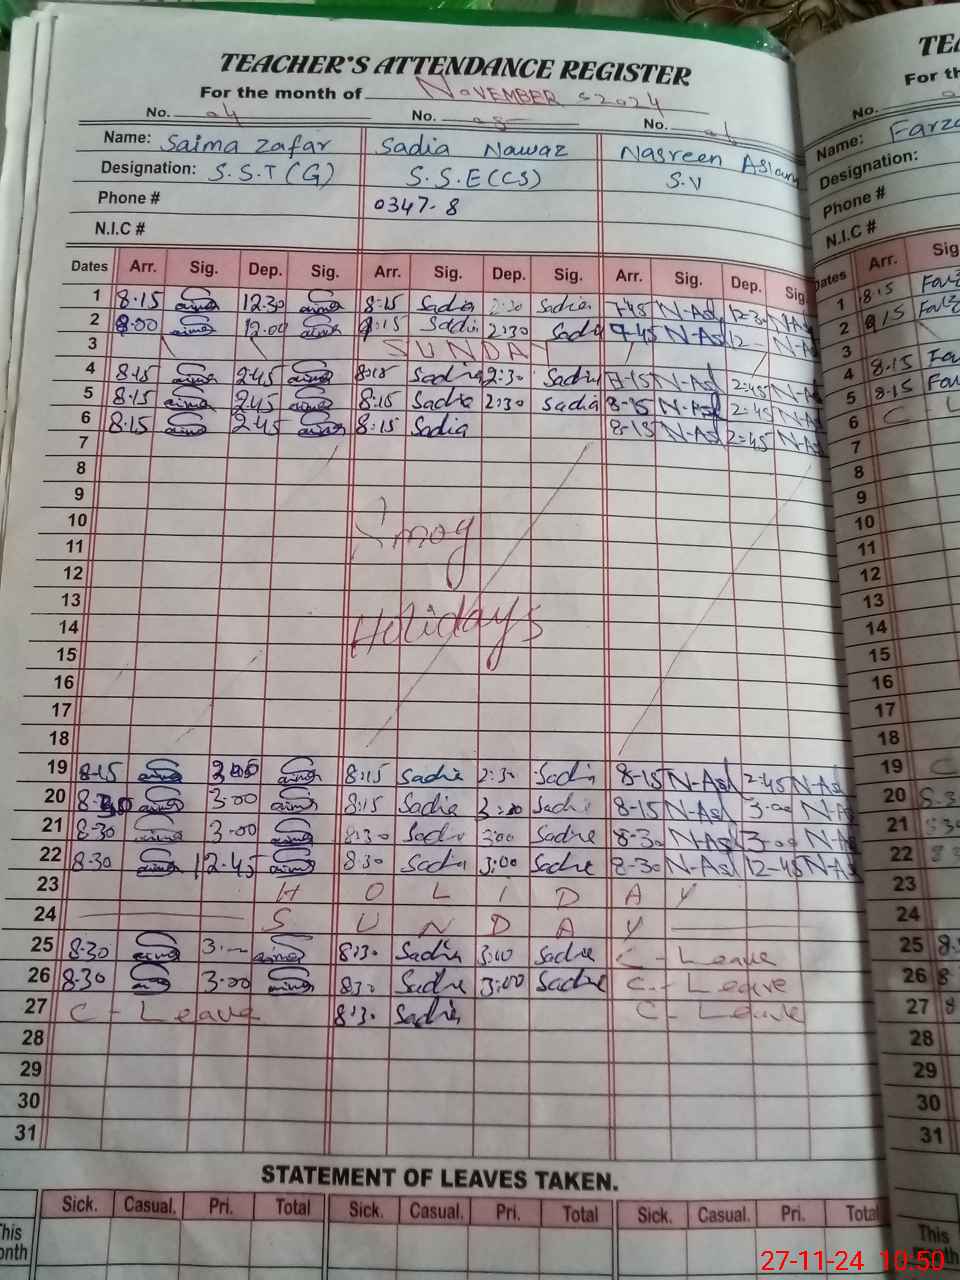 TEACHER'S ATTENDANCE REGISTER
For the month of NOVEMBER 2024
No. 04 No. 05 No.
Name: Saima Zafar Sadia Nawaz Nasreen Aslam
Designation: S.S.T (G) S.S.E (CS) S.V
Phone # 0347-8
N.I.C #
Dates Arr. Sig. Dep. Sig. Arr. Sig. Dep. Sig. Arr. Sig. Dep. Sig.
1 8.15 12.30 8:15 Sadia 2:30 Sadia 7-45 N-Asl 12-3 N-Asl
2 8.00 12.00 9:15 Sadia 2:30 Sadia 7-45 N-Asl 12- N-As
3 SUNDAY
4 8.15 2.45 8:15 Sadia 2:30 Sadia 8-15 N-Asl 2-45 N-A
5 8.15 2.45 8:15 Sadia 2:30 Sadia 8-15 N-Asl 2-45 N-A
6 8.15 2.45 8:15 Sadia 8-15 N-Asl 2-45 N-A
7
8
9
10 Smog
11
12
13
14 Holidays
15
16
17
18
19 8-15 8:15 Sadia 2:30 Sadia 8-15 N-Asl 2-45 N-As
20 8.30 3.00 8:15 Sadia 3:00 Sadia 8-15 N-Asl 3-00 N-A
21 8-30 3-00 8:30 Sadia 3:00 Sadia 8-30 N-Asl 3-00 N-A
22 8.30 12-45 8:30 Sadia 3:00 Sadia 8-30 N-Asl 12-45 N-A
23 H O L I D A Y
24 S U N D A Y
25 8.30 3.- 8:30 Sadia 3:00 Sadia C - Leave
26 8.30 3.00 8:30 Sadia 3:00 Sadia C - Leave
27 C - Leave 8:30 Sadia C - Leave
28
29
30
31
STATEMENT OF LEAVES TAKEN.
Sick. Casual. Pri. Total Sick. Casual. Pri. Total Sick. Casual. Pri. Total
This
Month
For th
No.
Name: Farza
Designation:
Phone #
N.I.C #
Dates Arr. Sig
1 8.15
2 9.15
3
4 8.15
5 8.15
6 C - L
7
8
9
10
11
12
13
14
15
16
17
18
19 C
20 8.3
21 8.30
22 8
23
24
25 8.
26 8
27 8
28
29
30
31
This
Month
27-11-24 10:50